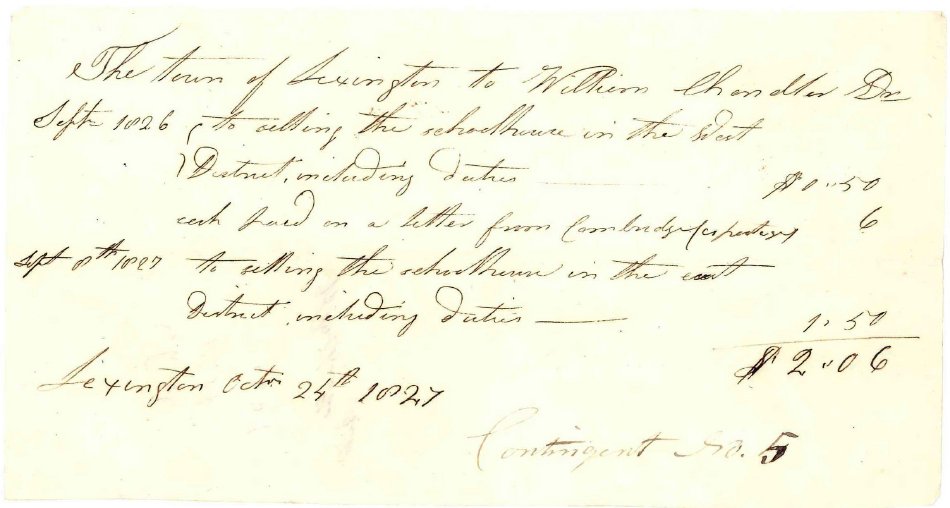 The town of Lexington to William Chandler Dr
Septr 1826 to selling the schoolhouse in the West
District, including duties $0.50
cash paid on a letter from Cambridge (as postage) 6
Sept 8th 1827 to selling the schoolhouse in the east
District, including duties 1.50
$2.06
Lexington Octr 24th 1827
Contingent No. 5